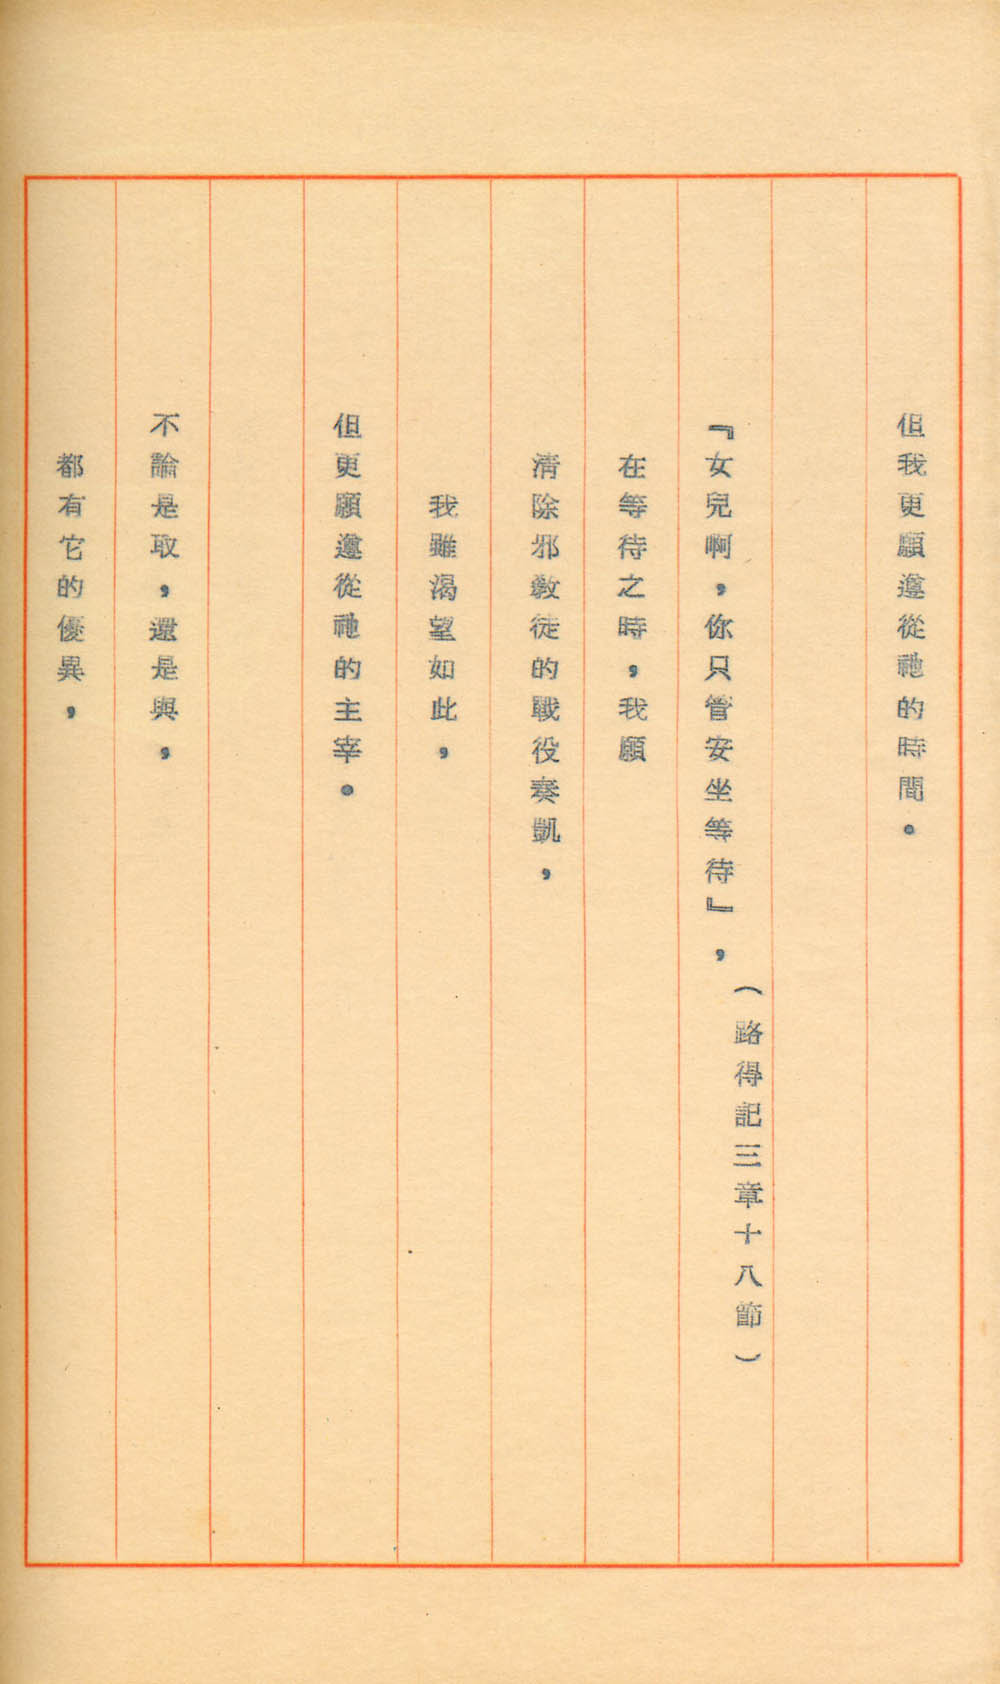 但我更願遵從祂的時間。
『女兒啊，你只管安坐等待』，（路得記三章十八節）
在等待之時，我願
清除邪教徒的戰役奏凱，
我雖渴望如此，
但更願遵從祂的主宰。
不論是取，還是與，
都有它的優異，